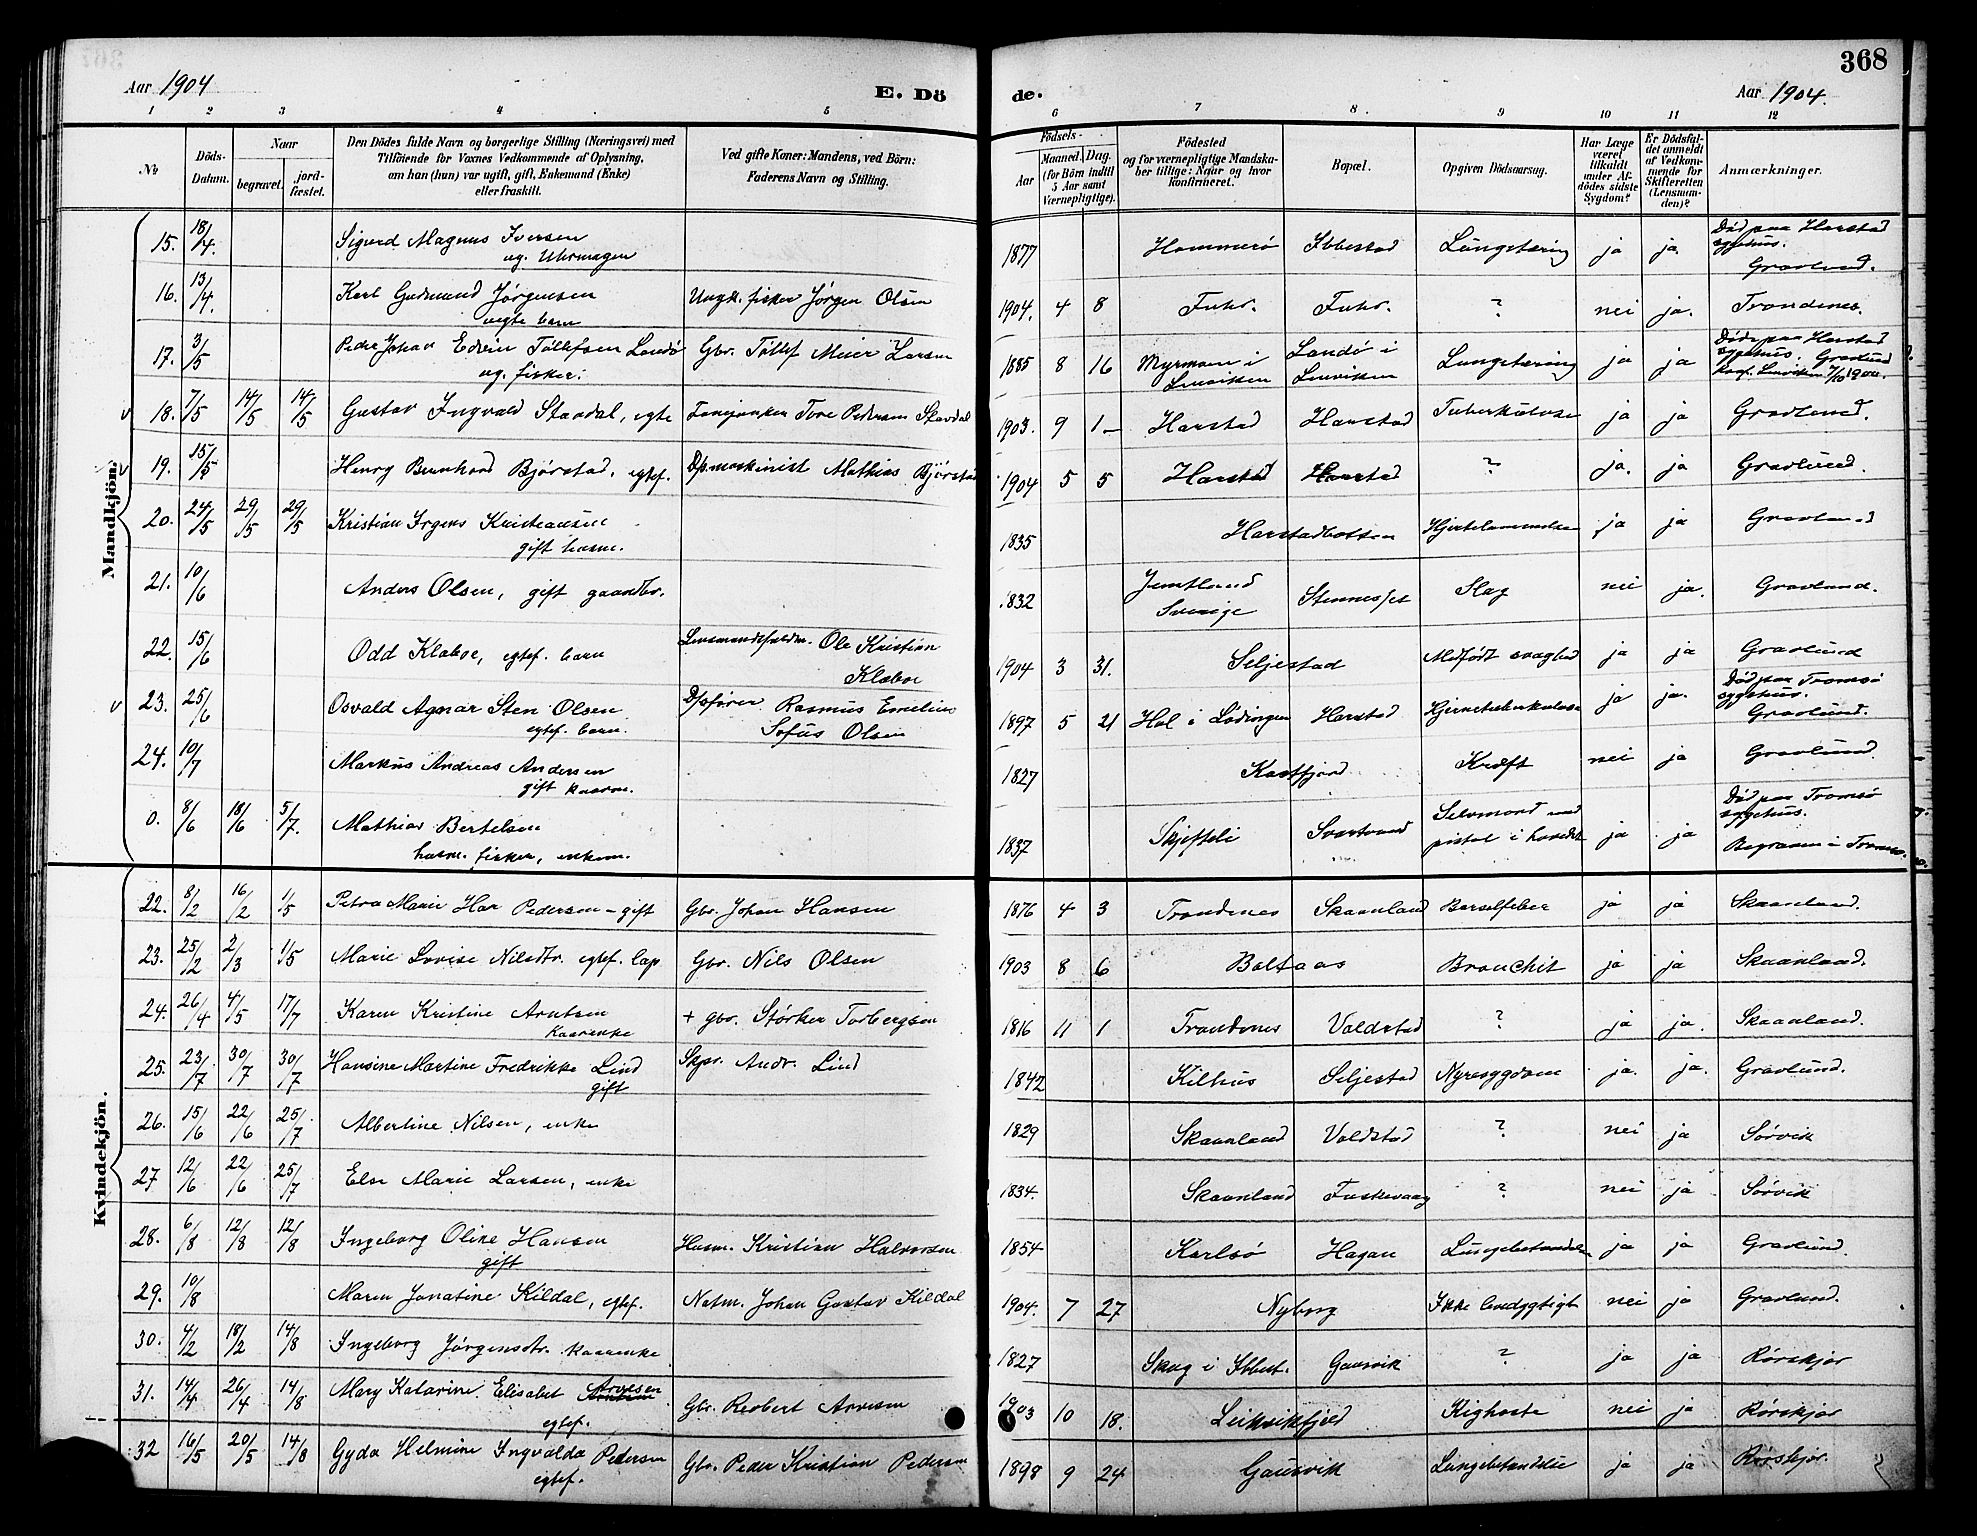 368
Aar 1904
E. Dö
de.
Aar 1904.
1 2 3 4 5 6 7 8 9 10 11 12
No
Döds-Datum.
Naar
begravet.
jordfæstet.
Den Dödes fulde Navn og borgerlige Stilling (Næringsvei) med
Tilföiende for Voxnes Vedkommende af Oplysning,
om han (hun) var ugift, gift, Enkemand (Enke)
eller fraskilt.
Ved gifte Koner: Mandens, ved Börn:
Faderens Navn og Stilling.
Födsels-
Aar
Maaned. Dag.
(for Börn indtil
5 Aar samt
Værnepligtige).
Födested
og for værnepligtige Mandska-
ber tillige: Naar og hvor
konfirmeret.
Bopæl.
Opgiven Dödsaarsag.
Har Læge
været
tilkaldt
under Af-
dödes sidste
Sygdom?
Er Dödsfal-
det anmeldt
af Vedkom-
mende for
Skifteretten
(Lensman-
den)?
Anmærkninger.
Mandkjön.
15. 18/4 Sigurd Magnus Iversen ug. Uhrmager 1877 Hammerø Ibbestad Lungetæring ja ja. Död paa Harstad sygehus. Gravlund.
16. 13/4. Karl Gudmund Jørgensen uegte barn Ungk. fisker Jørgen Olsen 1904. 4 8 ? nei ja. Trondenes.
17. 3/5 Peder Johan Edvin Tollefsen Landø ug. fisker. Gbr. Tollef Meier Larsen 1885 8 16 Myrmoen i Lenviken Landø i Lenviken Lungetæring ja ja Døde paa Harstad sygehus. Gravlund Konf. Lenviken 7/10 1900.
18. 7/5 14/5 14/5 Gustav Ingvald Skavdal, egte Tore Pedersen Skavdal 1903. 9 1 Harstad Harstad Tuberkulose ja ja Gravlund.
19. 15/5 Henry Bernhard Bjørstad. egtef. D/s.maskinist Mathias Bjørstad 1904 5 5 Harstad Harstad ? ja. ja Gravlund.
20. 24/5 29/5 29/5 Kristian Irgens Kristiansen gift husm. 1835 Harstadbotten Hjertelammelse ja ja Gravlund
21. 10/6 Anders Olsen, gift gaardbr. 1832 Jemtland Sverige Stennesset Slag nei ja. Gravlund.
22. 15/6 Odd Klæboe, egtef. barn Lensmandsfuldm. Ole Kristian Klæboe 1904 3 31. Seljestad Medfødt svaghed ja ja Gravlund
23. 25/6 Osvald Agnar Sten Olsen egtef. barn. D/sfører Rasmus Emelius Sofus Olsen 1897 5 21 Hol i Lødingen Harstad Hjernetuberkulose ja ja. Död paa Tromsö sygehus. Gravlund.
24. 10/7 Markus Andreas Andersen gift kaarm. 1827 Kasfjord Kræft nei ja Gravlund
0. 8/6 18/6 5/7. Mathias Bertelsen husm. fisker, enkem. 1837 Skjefteli Svartvand Selvmord med pistol i hovedet ja ja Död paa Tromsö sygehus. Begraven i Tromsø.
Kvindekjön.
22. 8/2 16/2 1/5 Petra Marie Har Pedersen - gift Gbr. Johan Hansen 1876 4 3 Trondenes Skaanland Barselfeber ja ja Skaanland.
23. 25/2 2/3 1/5 Marie Lovise Nilsdtr. egtef. lap Gbr. Nils Olsen 1903 8 6 Boltaas Bronchit ja ja Skaanland.
24. 26/4 4/5 17/7 Karen Kristine Arntsen kaarenke + gbr. Størker Torbergsen 1816 11 1 Trondenes Voldstad ? ja ja. Skaanland.
25. 23/7 30/7 30/7 Hansine Martine Fredrikke Lind gift Skpr. Andr. Lind 1842 Kilhus Seljestad Nyresygdom ja. ja. Gravlund.
26. 15/6 22/6 25/7 Albertine Nilsen, enke 1829 Skaanland Voldstad ? nei ja Sørvik
27 12/6 22/6 25/7 Else Marie Larsen, enke 1834. Skaanland Fuskevaag ? nei ja Sørvik
28. 6/8 12/8 12/8 Ingeborg Oline Hansen gift Husm. Kristian Halvorsen 1854 Karlsø Hagan Lungebetændelse ja ja Gravlund.
29. 10/8 Maren Jonatine Kildal, egtef. Notm. Johan Gustav Kildal 1904. 7 27 Nyborg Ikke levedygtigt nei ja Gravlund.
30. 4/2 18/2 14/8 Ingeborg Jørgensdtr. kaarenke 1827 Skog i Ibbest. Gausvik ? ja ja Rørskjær
31. 14/4 26/4 14/8 Mary Katarine Elisabet Arvesen egtef. Gbr. Reobert Arvesen 1903 10 18. Leikvikfjeld Kighoste nei ja Rørskjær
32 16/5 20/5 14/8 Gyda Helmine Ingvalda Pedersen egtef. Gbr. Peder Kristian Pedersen 1898 9 24 Gausvik Lungebetændelse ja ja Rørskjær.